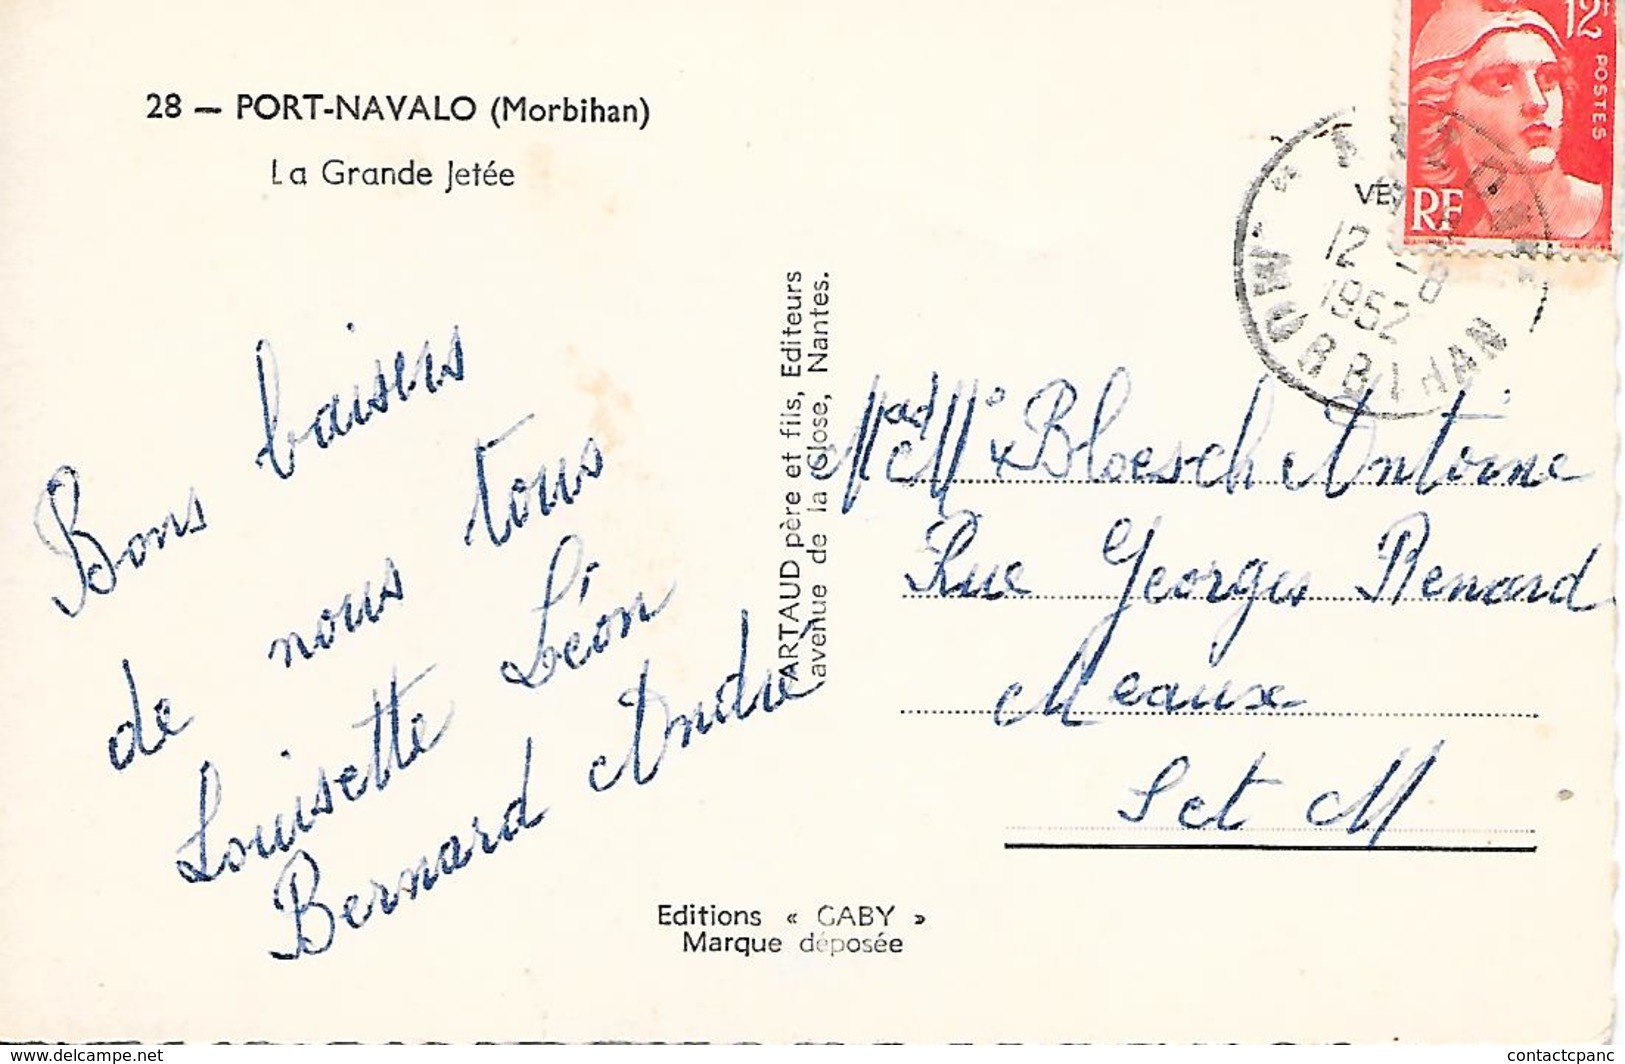 28 — PORT-NAVALO (Morbihan)
La Grande Jetée
Bons baisers
de nous tous
Louisette Léon
Bernard André
ARTAUD père et fils, Editeurs
avenue de la Close, Nantes.
Editions « GABY »
Marque déposée
12f
POSTES
RF
12 - 8
1952
MORBIHAN
Bloesch Antoine
Rue Georges Renard
Meaux
S et M
www.delcampe.net
contactcpanc